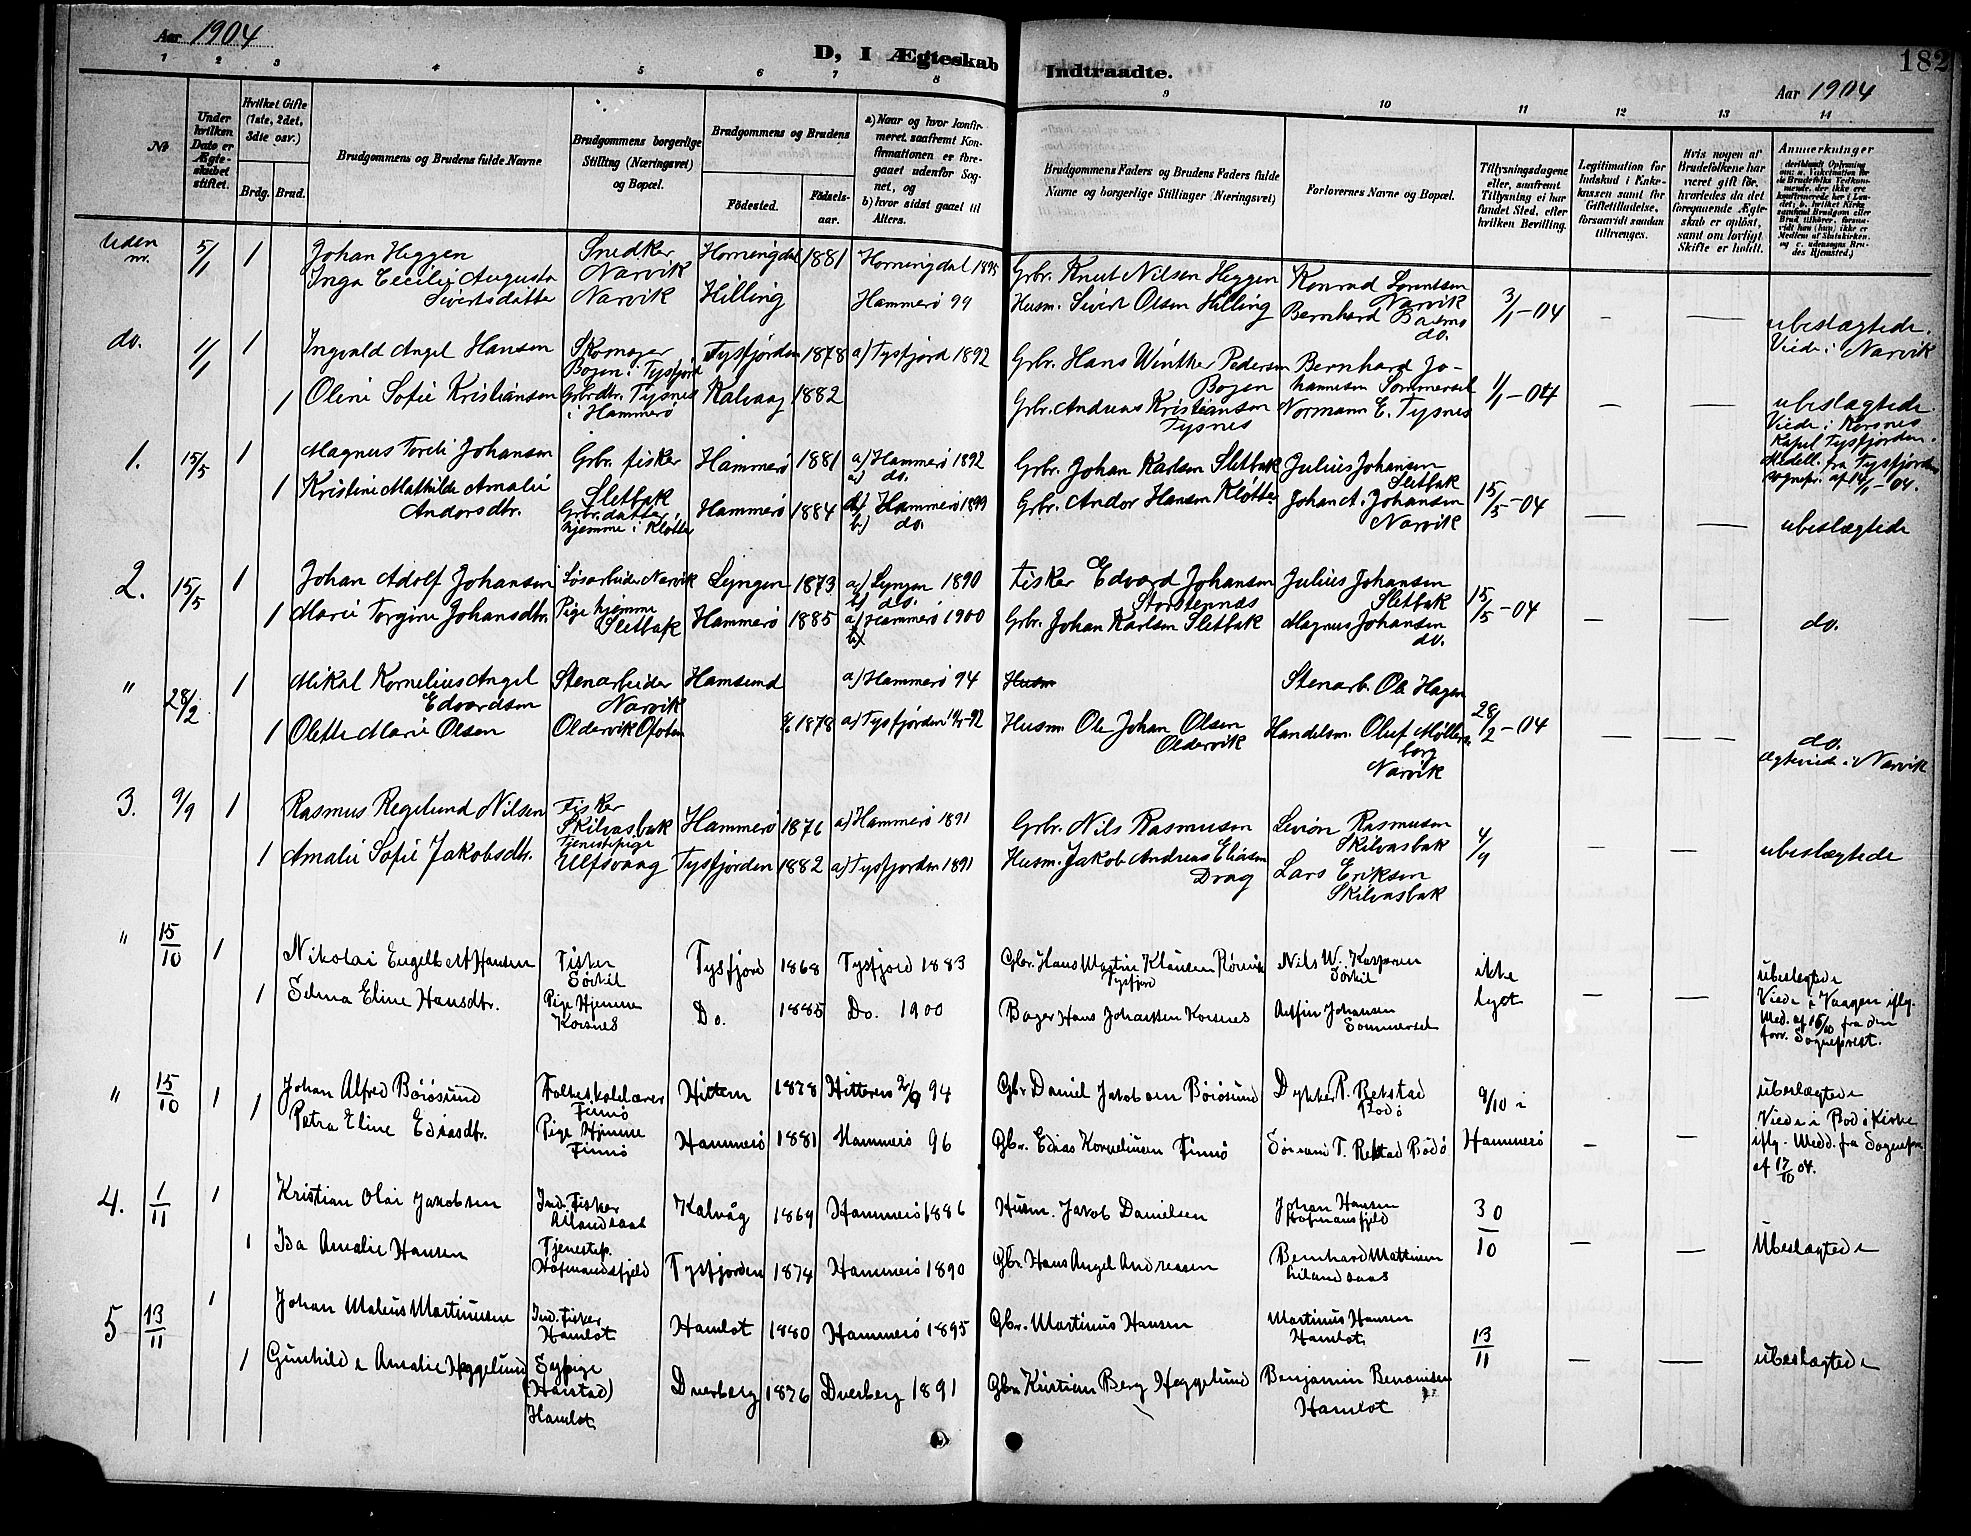 Aar 1904
D, I Ægteskab Indtraadte.
182
Aar 1904
1 2 3 4 5 6 7 8 9 10 11 12 13 14
No
Under hvilken Dato er Ægteskabet stiftet.
Hvilket Gifte (1ste, 2det, 3die osv.)
Brdg. Brud.
Brudgommens og Brudens fulde Navne
Brudgommens borgerlige Stilling (Næringsvei) og Bopæl.
Brudgommens og Brudens
Födested.
Födsels-aar.
a) Naar og hvor konfirmeret, saafremt Konfirmationen er foregaaet udenfor Sognet, og
b) hvor sidst gaaet til Alters.
Brudgommens Faders og Brudens Faders fulde Navne og borgerlige Stillinger (Næringsvei)
Forlovernes Navne og Bopæl.
Tillysningsdagene eller, saafremt Tillysning ei har fundet Sted, efter hvilken Bevilling.
Legitimation for Indskud i Enkekassen samt for Giftetilladelse, forsaavidt saadan tiltrænges.
Hvis nogen af Brudefolkene har været gift för, hvorledes da det foregaaende Ægteskab er oplöst, samt om lovligt Skifte er holdt.
Anmærkninger
Uden nr. 5/1 1 Johan Heggen Snedker Narvik Horningdal 1881 Horningdal 1895 Grbr. Knut Nilsen Heggen Konrad Sørentsen Narvik 3/1-04 — — ubeslægtede. Viede i Narvik
Inga Ecilie Augusta Sivertsdatter Narvik Hilling Hammerö 99 Husm. Sivert Olsen Hilling Bernhard do.
do. 1/1 1 Ingvald Angel Hansen Skomager Bogen i Tysfjord Tysfjorden 1878 a) Tysfjord 1892 Grbr. Hans Winther Pedersen Bogen Bernhard Johannesen Sommersel 1/1-04 — — ubeslægtede. Viede i Korsnes Kapel Tysfjorden. Medell. fra Tysfjorden
1 Oline Sofie Kristiansen Grbrdtr. Tysnes i Hammerö Kalvaag 1882 Grbr. Andreas Kristiansen Tysnes Normann E. Tysnes
1. 15/5 1 Magnus Toreli Johansen Grbr. fisker Sletbak Hammerö 1881 a) Hammerö 1892 do. Grbr. Johan Karlsen Sletbak Julius Johansen Sletbak 15/5-04 — — ubeslægtede
1 Kristine Mathilde Amalie Andorsdtr. Grbr. datter hjemme i Kløtte Hammerö 1884 Hammerö 1899 b) do. Grbr. Andor Hansen Kløtte Johan A. Johansen Narvik
2. 15/5 1 Johan Adolf Johansen Løsarbeider Narvik Lyngen 1873 a) Lyngen 1890 b) do. Fisker Edvard Johansen Storstennæs Julius Johansen Sletbak 15/5-04 — — do.
1 Marie Torgine Johansdtr. Pige hjemme Sletbak Hammerö 1885 a) Hammerö 1900 b) Grbr. Johan Karlsen Sletbak Magnus Johansen do.
" 28/2 1 Mikal Kornelius Angel Edvardsen Stenarbeider Narvik Hamsund a) Hammerö 94 Husm Stenarb. Ole Hagen 28/2-04 — — — do. ægteviede i Narvik
1 Olette Marie Olsen Oldervik Ofoten 1878 a) Tysfjorden 92 Husm. Ole Johan Olsen Oldervik Handelsm. Oluf Møllerborg Narvik
3. 9/9 1 Rasmus Regelund Nilsen Fisker Skilvasbak Hammerö 1876 a) Hammerö 1891 Grbr. Nils Rasmusen Levion Rasmusen Skilvasbak 4/9 — — ubeslægtede
1 Amalie Sofie Jakobsdtr. Tjenestepige Ulfsvaag Tysfjorden 1882 a) Tysfjorden 1891 Husm. Jakob Andreas Eliasen Drag Lars Eriksen Skilvasbak
" 15/10 1 Nikolai Engelbert Hansen Fisker Sörkil Tysfjord 1868 Tysfjord 1883 Gbr. Hans Martin Klausen Tysfjord Nils W. Kaspersen Sörkil ikke lyst — — ubeslegtede Viede i Vaagen iflg. Med. af 16/10 fra den forr. Sogneprest.
1 Selma Eline Hansdtr. Pige Hjemme Korsnes Do. 1885 Do. 1900 Bager Hans Johanssen Korsnes Johansen Sommersel
" 15/10 1 Johan Alfred Böiösund Folkeskolelærer Finnö Hittern 1878 Hitteren 2/9 94 Gbr Daniel Jakobsen Böiösund Dykker P. Rekstad Bodö 9/10 i Hammerö — — ubeslægtede Viede i Bodö Kirke iflg. Medd. fra Sognepr. af 17/10 04.
1 Petra Eline Ediasdtr. Pige Hjemme Finnö Hammerö 1881 Hammerö 96 Gbr. Edias Korneliusen Finnö T. Rekstad Bodö
4. 1/11 1 Kristian Olai Jakobsen Ind. Fisker Kalvåg 1869 Hammerö 1886 Husm. Jakob Danielsen Johan Hansen Hofmansfjeld 30/10 — — Ubeslægtede
1 Ida Amalie Hansen Tjenestep. Hofmandsfjeld Tysfjorden 1874 Hammerö 1890 Gbr. Hans Angel Andreasen Bernhard
5 13/11 1 Johan Malius Martinusen Ind. Fisker Hamlot Hamlot 1880 Hammerö 1895 Gbr. Martinus Hansen Martinus Hansen Hamlot 13/11 — — ubeslægtede
1 Gunhilde Amalie Heggelund Sypige (Harstad) Hamlot Dverberg 1876 Dverberg 1891 Gbr Kristian Berg Heggelund Benjamin Benoniesen Hamlot